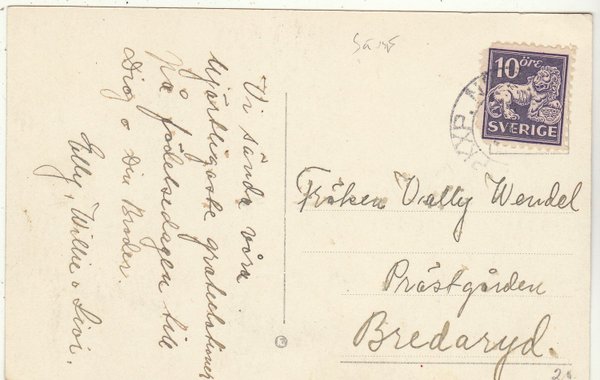 Vi sända våra
hjärtligaste gratulationer
på födelsedagen till
Dig o Din Broder.
Elly, Willie o Livi.
10 ÖRE
SVERIGE
Fröken Vally Wendel
Prästgården
Bredaryd.